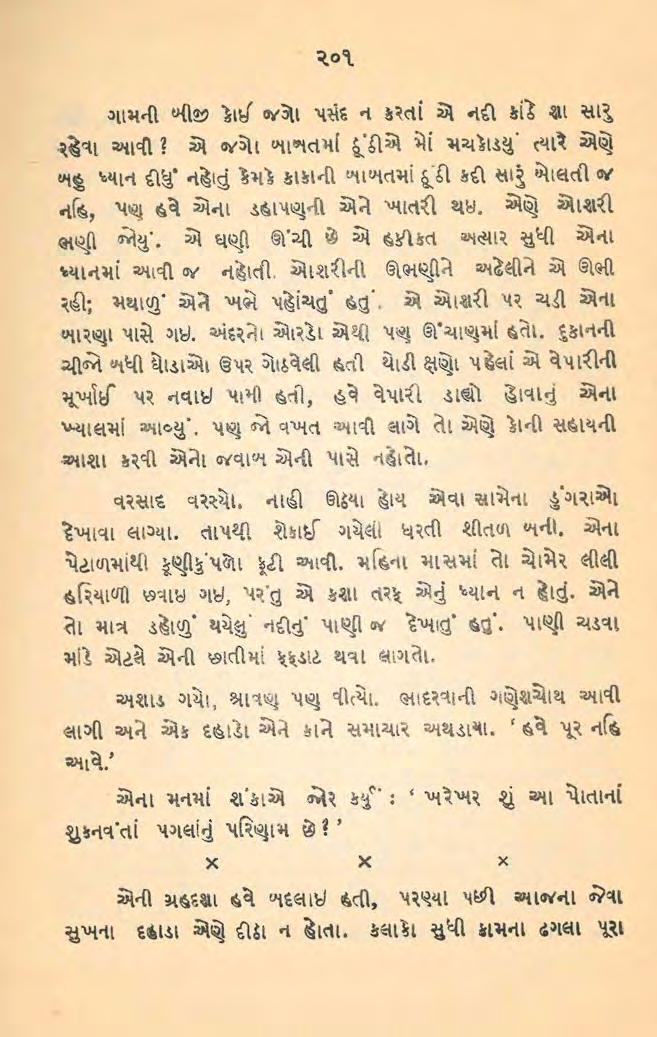 ૨૦૧
ગામની બીજી કોઈ જગો પસંદ ન કરતાં એ નદી કાંઠે શા સારુ
રહેવા આવી? એ જગો બાબતમાં ઠૂંઠીએ મોં મચકોડયું ત્યારે એણે
બહુ ધ્યાન દીધું નહોતું કેમકે કાકાની બાબતમાં ઠૂંઠી કદી સારું બોલતી જ
નહિ, પણ હવે એના ડહાપણની એને ખાતરી થઇ. એણે ઓશરી
ભણી જોયું. એ ઘણી ઊંચી છે એ હકીકત અત્યાર સુધી એના
ધ્યાનમાં આવી જ નહોતી. ઓશરીની ઊભણીને અઢેલીને એ ઊભી
રહી; મથાળું એને ખભે પહોંચતું હતું. એ ઓશરી પર ચડી એના
બારણા પાસે ગઇ. અંદરનો ઓરડો એથી પણ ઊંચાણમાં હતો. દુકાનની
ચીજો બધી ઘોડાઓ ઉપર ગોઠવેલી હતી થોડી ક્ષણો પહેલાં એ વેપારીની
મૂર્ખાઈ પર નવાઇ પામી હતી, હવે વેપારી ડાહ્યો હોવાનું એના
ખ્યાલમાં આવ્યું. પણ જો વખત આવી લાગે તો એણે કોની સહાયની
આશા કરવી એનો જવાબ એની પાસે નહોતો.
વરસાદ વરસ્યો. નાહી ઊઠયા હોય એવા સામેના ડુંગરાઓ
દેખાવા લાગ્યા. તાપથી શેકાઈ ગયેલી ધરતી શીતળ બની. એના
પેટાળમાંથી કૂણીકુંપળો ફૂટી આવી. મહિના માસમાં તો ચોમેર લીલી
હરિયાળી છવાઇ ગઇ, પરંતુ એ કશા તરફ એનું ધ્યાન ન હોતું. એને
તો માત્ર ડહોળું થયેલું નદીનું પાણી જ દેખાતું હતું. પાણી ચડવા
માંડે એટલે એની છાતીમાં ફફડાટ થવા લાગતો.
અશાડ ગયો, શ્રાવણ પણ વીત્યો. ભાદરવાની ગણેશચોથ આવી
લાગી અને એક દહાડો એને કાને સમાચાર અથડાયા. ‘હવે પૂર નહિ
આવે.’
એના મનમાં શંકાએ જોર કર્યું : ‘ ખરેખર શું આ પોતાનાં
શુકનવંતાં પગલાંનું પરિણામ છે? ’
× × ×
એની ગ્રહદશા હવે બદલાઇ હતી, પરણ્યા પછી આજના જેવા
સુખના દહાડા એણે દીઠા ન હોતા. કલાકો સુધી કામના ઢગલા પૂરા